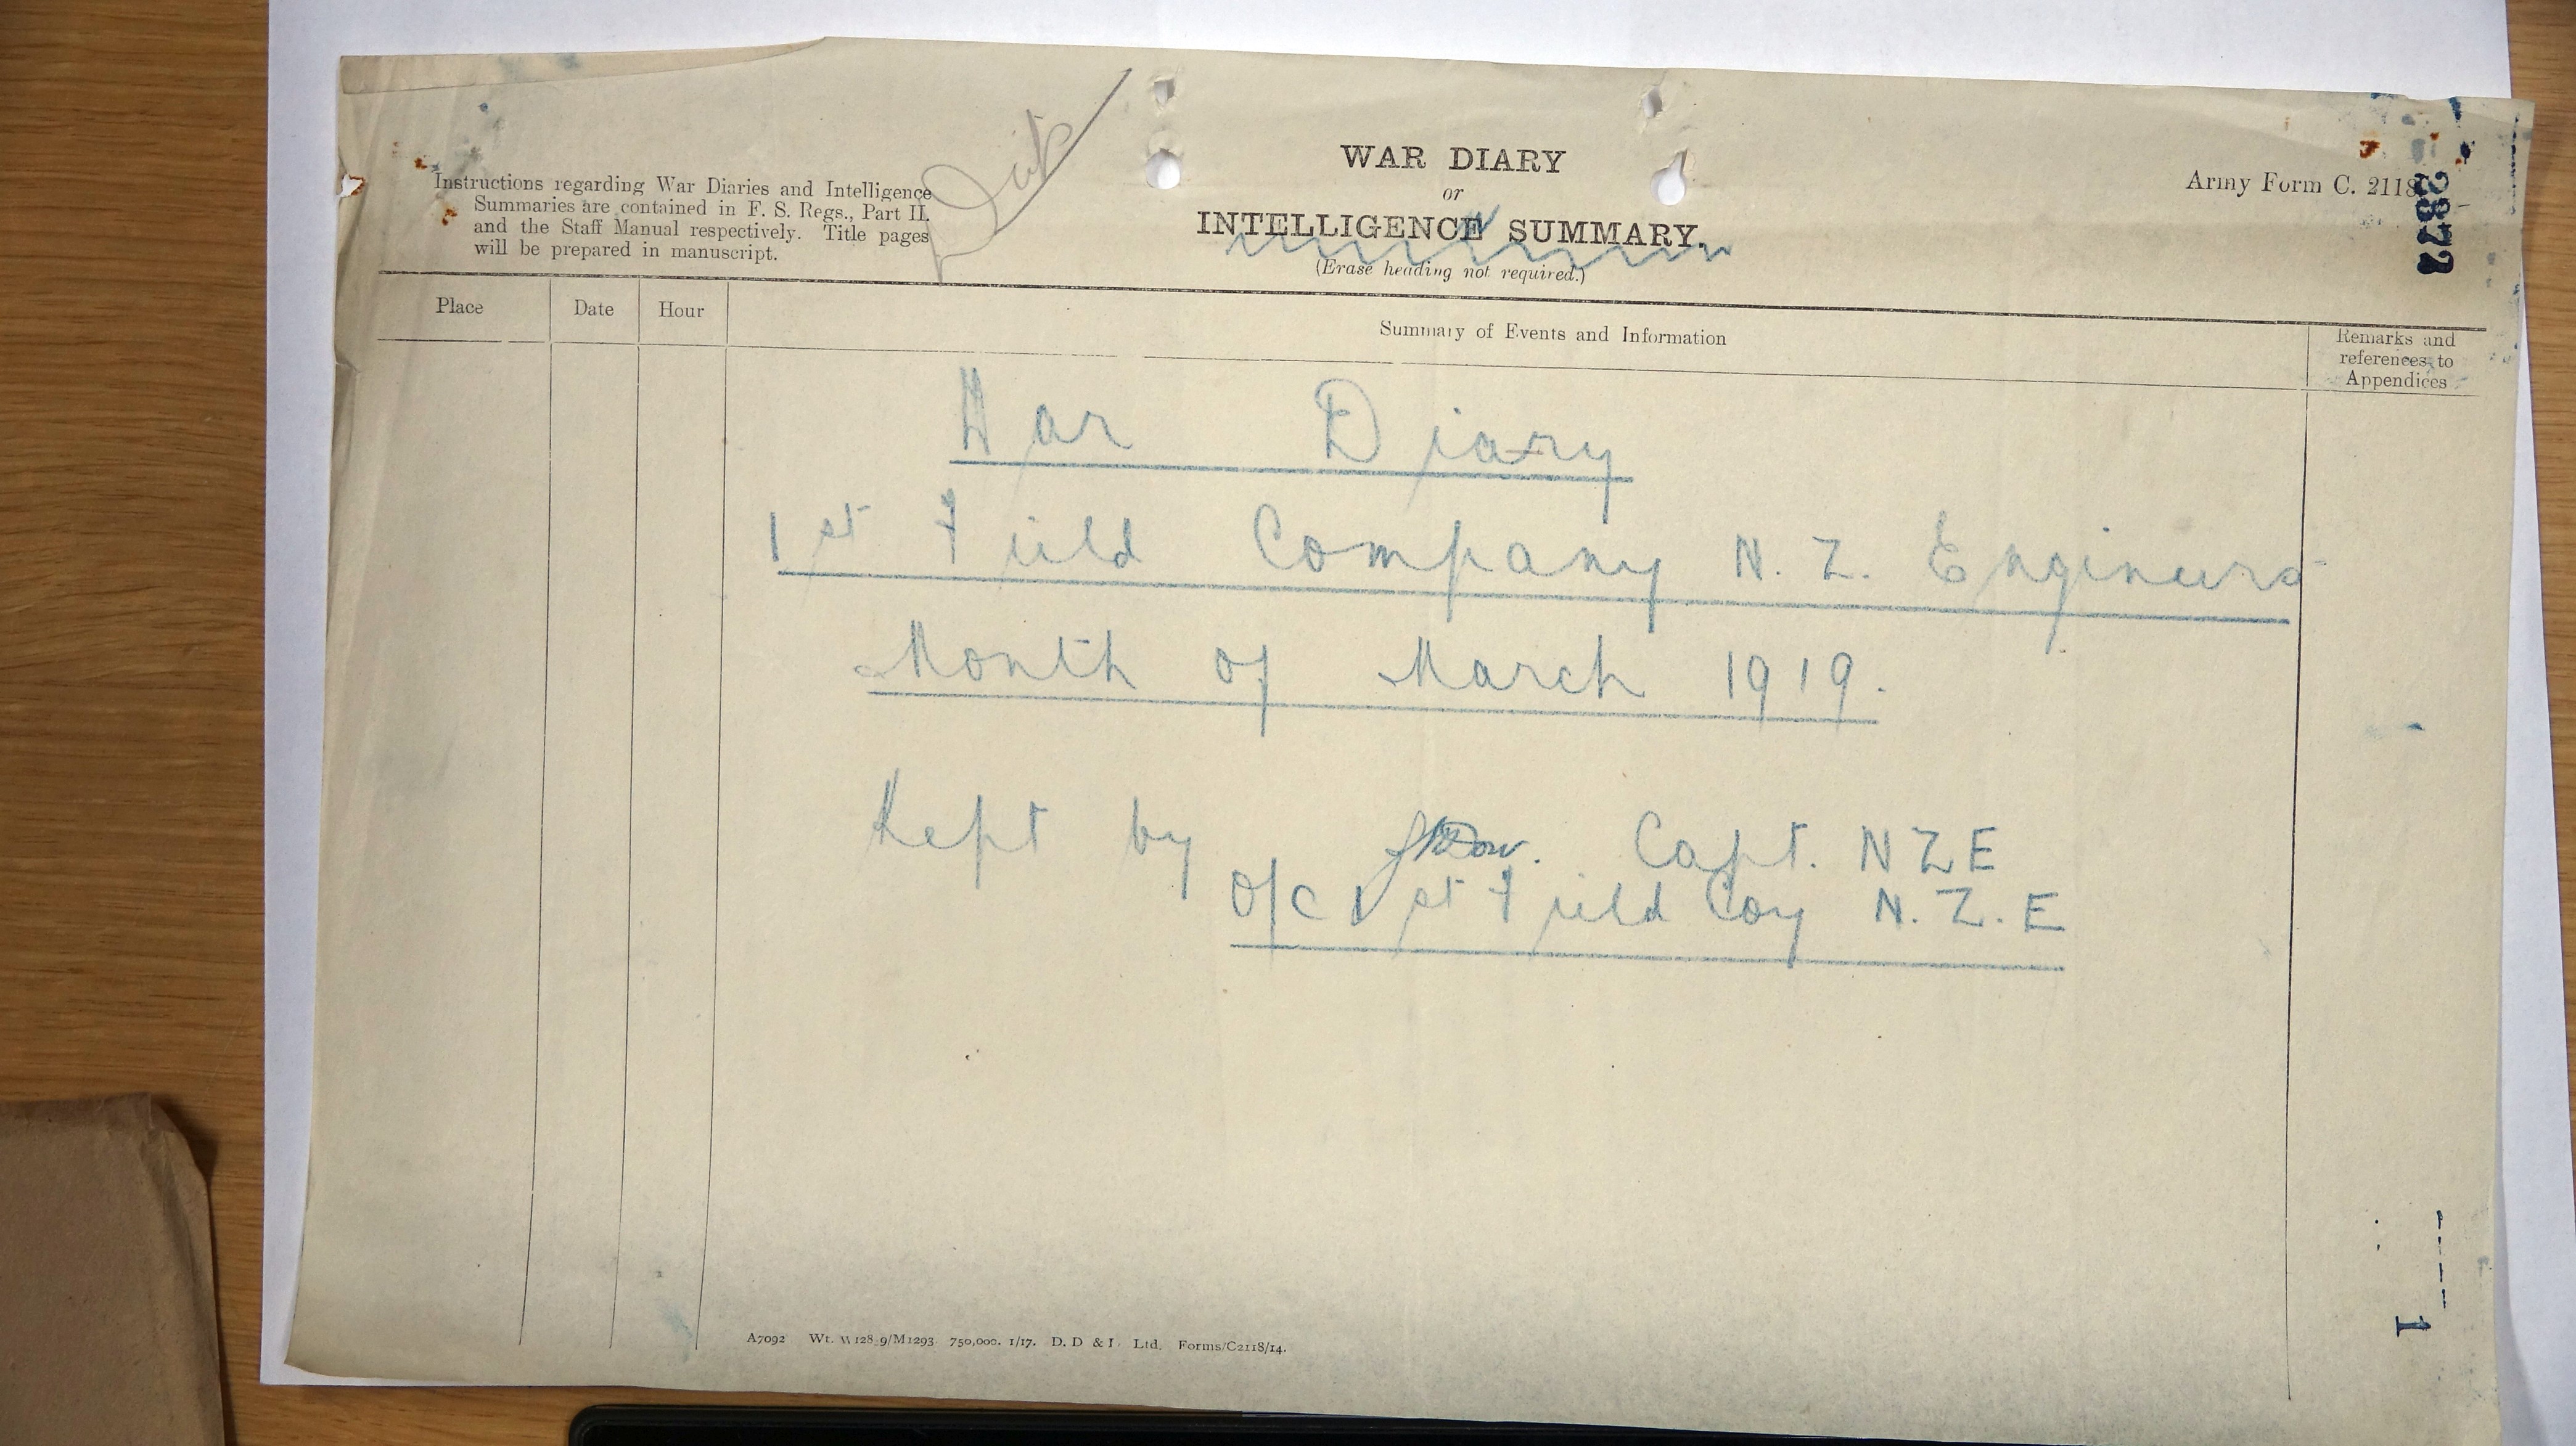 WAR DIARY
or
INTELLIGENCE SUMMARY.
(Erase heading not required.)
Army Form C. 2118
2872
Instructions regarding War Diaries and Intelligence
Summaries are contained in F. S. Regs., Part II.
and the Staff Manual respectively. Title pages
will be prepared in manuscript.
Place Date Hour Summary of Events and Information Remarks and
references to
Appendices
War Diary
1st Field Company N. Z. Engineers
Month of March 1919.
Kept by Capt. NZE
O/C 1st Field Coy N. Z. E
1
A7092 Wt. W128 9/M1293 750,000. 1/17. D. D & L Ltd. Forms/C2118/14.